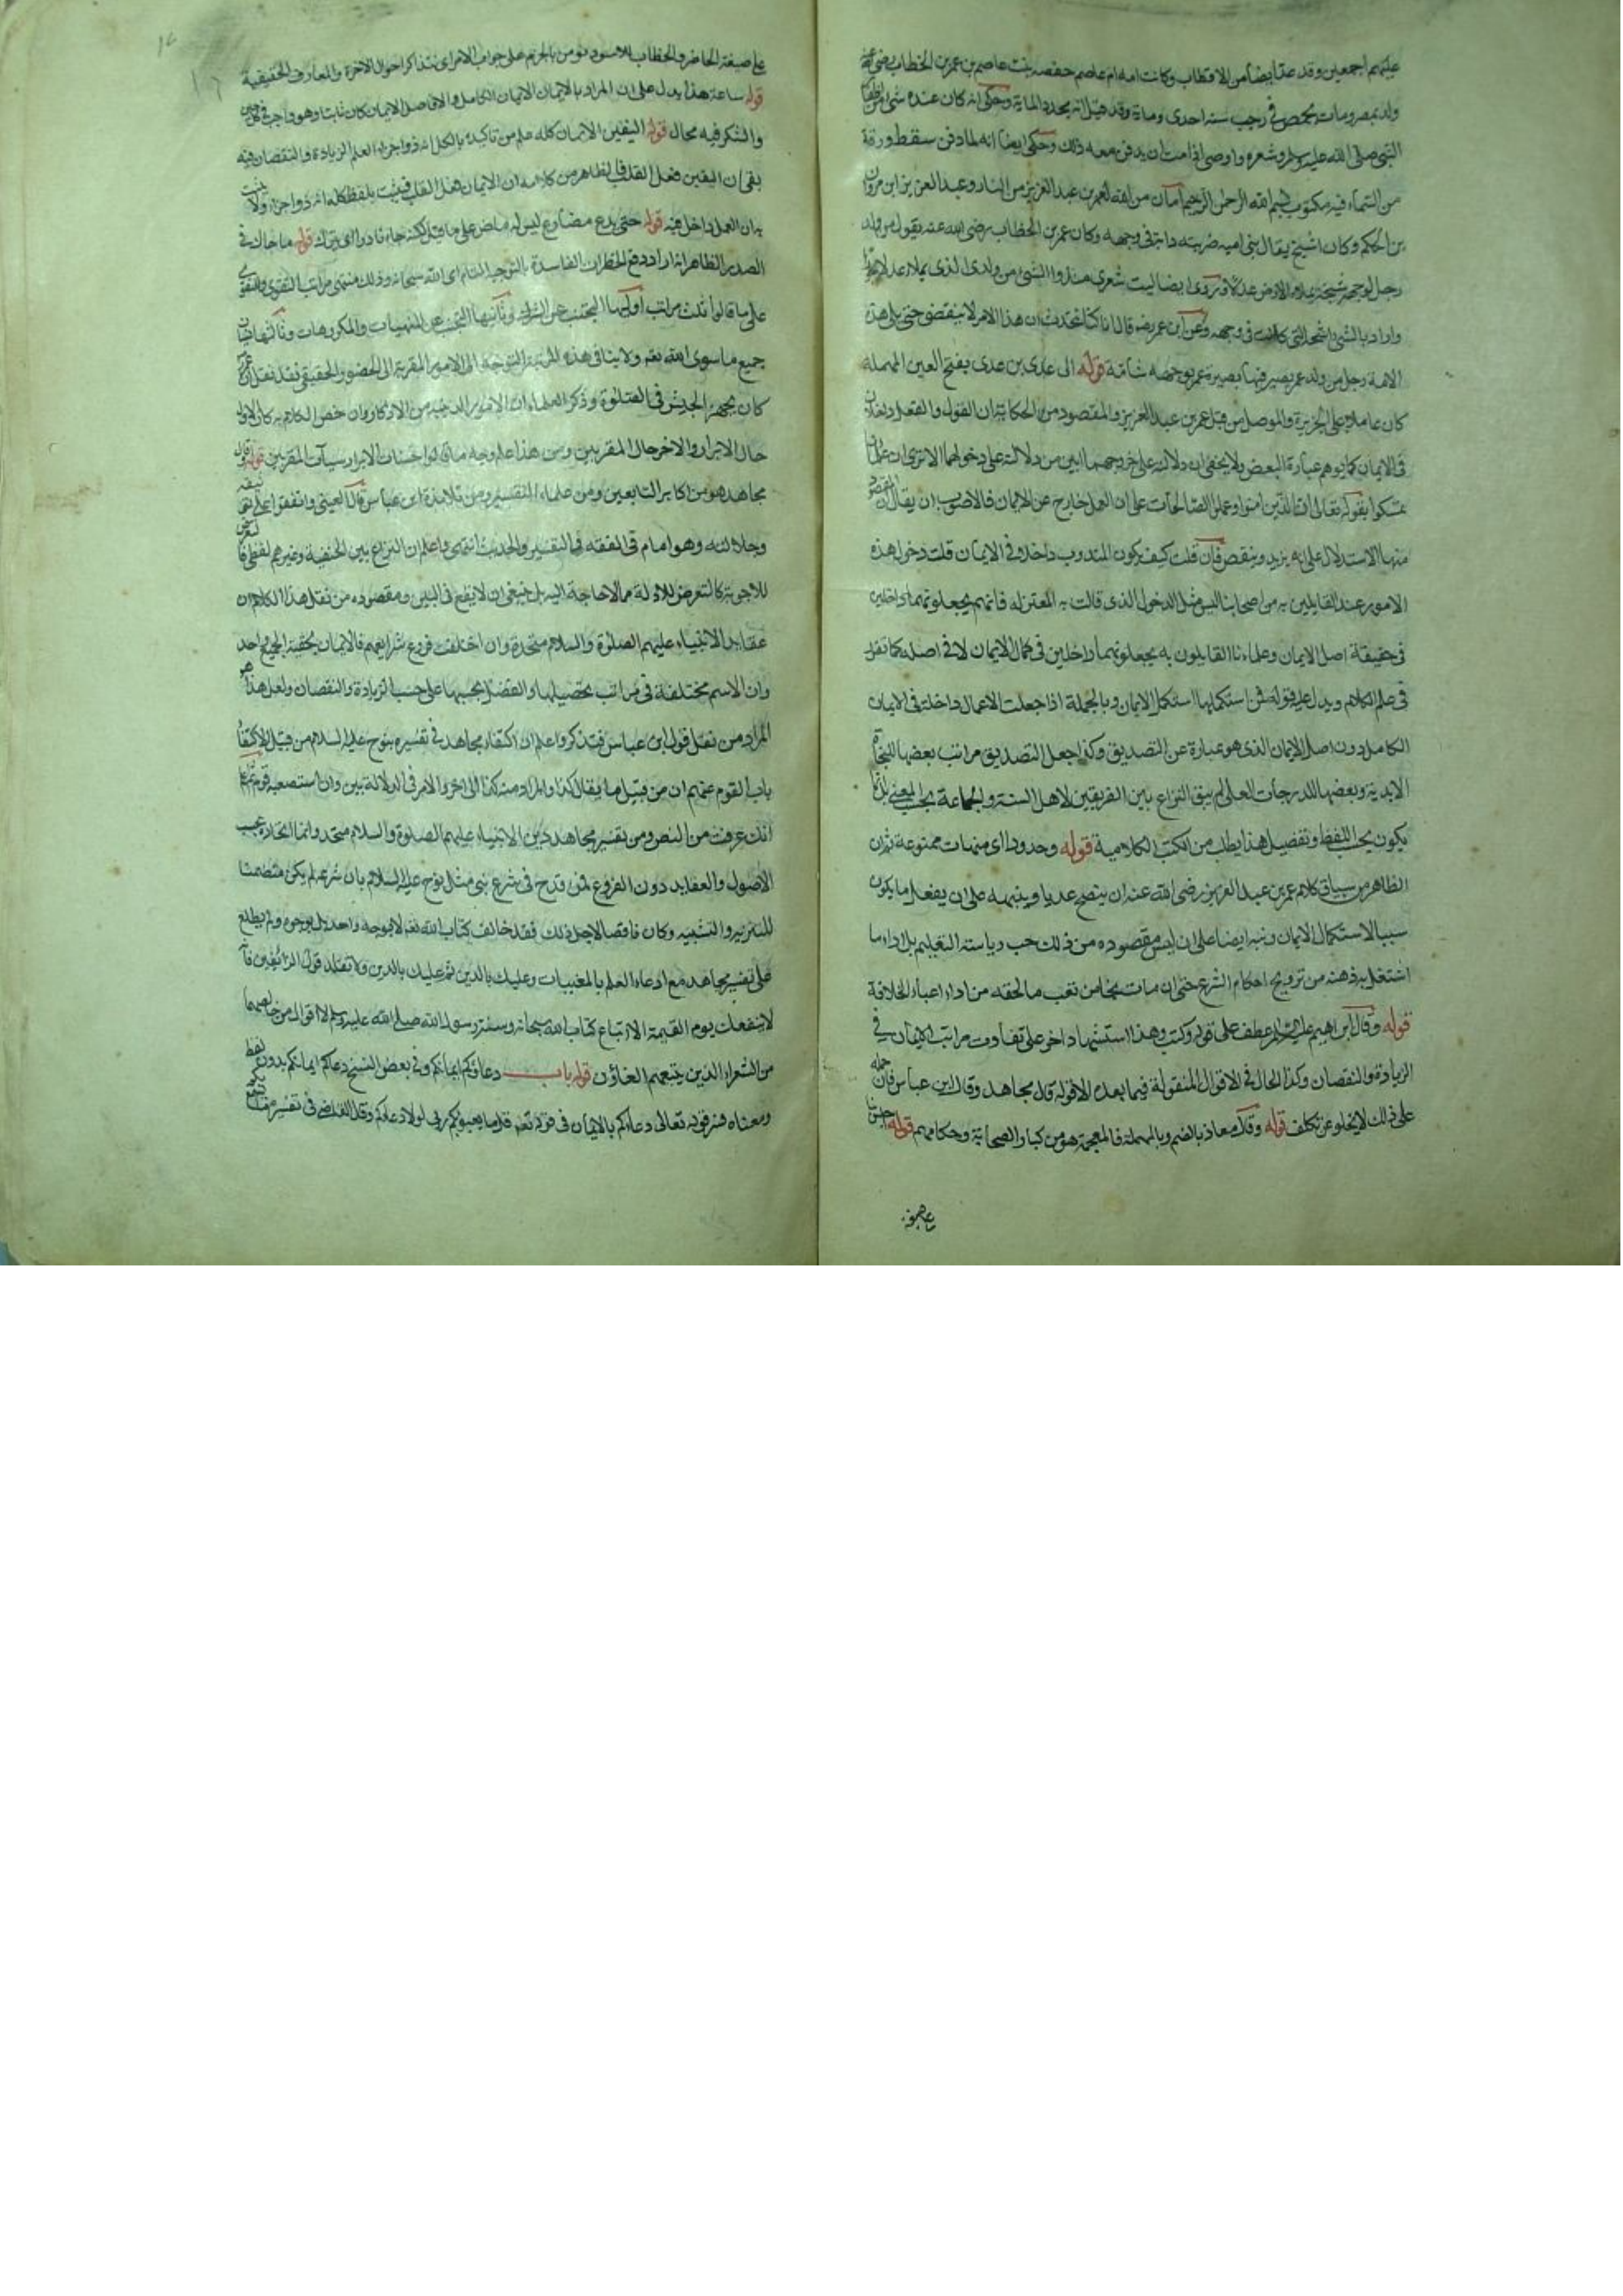 عليهم اجمعين وقد عد ايضا من الاقطاب وكانت امه ام عاصم حفصه بنت عاصم بن عمر بن الخطاب رضي الله عنه
ولد بمصر ومات بحمص في رجب سنه احدى وماية وقد قيل انه يجدد الماية وحكى انه كان عنده شى من
النبي صلى الله عليه وسلم وشعره واوصى اذا مت ان يدفن معه ذلك وحكى ايضا انه لما دفن سقط ورقة
من السماء فيه مكتوب بسم الله الرحمن الرحيم امان من الله لعمر بن عبد العزيز من النار وعبد العزيز ابن مروان
بن الحكم وكان اشبح يقال بنى اميه ضربته دابة في وجهه وكان عمر بن الخطاب رضى الله عنه يقول من ولد
رجل لوجهه شجة يملاء الارض عدلا وروى ايضا ليت شعرى من ذو الشين من ولدى الذى يملاء عدلا
واراد بالشين الشجة التى كانت في وجهه وعن ابن عمر رضه قال انا كنا نتحدث ان هذا الامر لا ينقضى حتى يلى هذه
الامة رجل من ولد عمر يصير فيها بصيرة عمر بوجهه شامة قوله الى عدى بن عدى بفتح العين المهملة
كان عاملا على الجزيرة والموصل من قبل عمر بن عبد العزيز والمقصود من الحكاية ان القول والفعل داخلان
في الايمان كما يوهم عبارة البعض ولا يخفى ان دلالته على خروجهما ابين من دلالته على دخولهما الا ترى ان
تمسكوا بقوله تعالى ان الذين امنوا وعملوا الصالحات على ان العمل خارج عن الايمان فالاصوب ان يقال ان المقصود
منها الاستدلال على انه يزيد وينقص فان قلت كيف يكون المندوب داخلا في الايمان قلت دخول هذه
الامور عند القايلين به من اصحابنا ليس مثل الدخول الذى قالت به المعتزله فانهم يجعلونها داخلين
في حقيقة اصل الايمان وعلماءنا القايلون به يجعلونهما داخلين في كمال الايمان لا في اصله كما تقرر
في علم الكلام ويدل عليه قوله فمن استكملها استكمل الايمان وبالجملة اذا جعلت الاعمال داخلة في الايمان
الكامل دون اصل الايمان الذى هو عبارة عن التصديق وكذا جعل التصديق مراتب بعضها للنجاة
الابدية وبعضها للدرجات العلى لم يبق النزاع بين الفريقين لاهل السنة والجماعة بحسب المعنى بل انما
يكون بحسب اللفظ وتفصيل هذا يطلب من الكتب الكلامية قوله وحدودا اى منهيات ممنوعة ثم ان
الظاهر من سياق كلام عمر بن عبد العزيز رضى الله عنه ان ينصح عديا وينبهه على ان يفعل ما يكون
سببا لاستكمال الايمان ونبه ايضا على ان ليس مقصوده من ذلك حب رياسته التعليم بل اداء ما
اشتغل به ذهنه من ترويج احكام الشرع حتى ان مات نجا من تعب ما لحقه من اداء اعباء الخلافة
قوله وقال ابراهيم عليه السلام عطف على قوله وكتب وهذا استشهاد اخر على تفاوت مراتب الايمان في
الزيادة والنقصان وكذا الحال في الاقوال المنقولة فيما بعد الا قوله قال مجاهد وقال ابن عباس فان حمله
على ذلك لا يخلو عن تكلف قوله وقال معاذ بالضم وبالمهملة فالمعجمة هو من كبار الصحابة وحكامهم قوله اجلس بنا
على صيغة الحاضر والخطاب للاسود نؤمن بالجزم على جواب الامر اى نتذاكر احوال الاخرة والمعارف الحقيقية
قوله ساعة هذا يدل على ان المراد بالايمان الايمان الكامل والا فاصل الايمان كان ثابتا وهو واجب في كل حين
والشكر فيه محال قوله اليقين الايمان كله علم من تاكيده بالكل انه ذو اجزاء العلم الزيادة والنقصان فيه
بقى ان اليقين فعل القلب فالظاهر من كلامه ان الايمان فعل القلب فيثبت بلفظ كله انه ذو اجزاء ولا يثبت
به ان العمل داخل فيه قوله حتى يدع مضارع ليس له ماض على ما قيل لكنه جاء نادرا اى يترك قوله ما حاك في
الصدر الظاهر انه اراد دفع الخطرات الفاسدة بالتوجه التام الى الله سبحانه وذلك منتهى مراتب التقوى والتقوى
على ما قالوا ثلث مراتب اولها التجنب عن الشرك وثانيها التجنب عن المنهيات والمكروهات وثالثها
جميع ما سوى الله تعم ولا ينافى هذه المرتبة التوجه الى الامور المقربة الى الحضور الحقيقى فقد نقل ان عمر
كان يجهز الجيش في الصلوة وذكر العلماء ان الامور الدينية من الاذكار وان خص الكلام به كان الاول
حال الابرار والاخر حال المقربين ومن هذا علم وجه ما قالوا حسنات الابرار سيآت المقربين قوله وقال
مجاهد هو من اكابر التابعين ومن علماء التفسير ومن تلامذة ابن عباس قال العينى واتفقوا على
وجلالته وهو امام في الفقه في التفسير والحديث انتهى واعلم ان النزاع بين الحنفية وغيرهم لفظى فالتعرض
للاجوبة كالتعرض للادلة مما لا حاجة اليه بل ينبغى ان لا يقع في البين ومقصوده من نقل هذا الكلام ان
عقايد الانبياء عليهم الصلوة والسلام متحدة وان اختلفت فروع شرايعهم فالايمان بحقية الجميع واحد
وان الاسم مختلفة في مراتب تحصيلها والفضل بحسبها على حسب الزيادة والنقصان ولعل هذا هو
المراد من نقل قول ابن عباس فتذكر واعلم ان اكتفاء مجاهد في تفسيره بنوح عليه السلام من قبيل الاكتفاء
باب القوم عنهم ان من قبيل ما يقال كذا والمراد منه كذا الى اخره والامر في الدلالة بين وان استصعبه قوم
انك عرفت من النص ومن تفسير مجاهد دين الانبياء عليهم الصلوة والسلام متحد وانما اتحاده بحسب
الاصول والعقايد دون الفروع فمن قدح في شرع نبى مثل نوح عليه السلام بان شرعه لم يكن متضمنا
للتنزيه والتشبيه وكان ناقصا لاجل ذلك فقد خالف كتاب الله تعم لا بوجه واحد بل بوجوه ولم يطلع
على تفسير مجاهد مع ادعاء العلم بالمغيبات وعليك بالدين ثم عليك بالدين ولا تقلد قول الزائغين فانه
لا ينفعك يوم القيمة الا اتباع كتاب الله سبحانه وسنة رسول الله صلى الله عليه وسلم لا اقوال من
من الشعراء الذين يتبعهم الغاؤن قوله باب دعاؤكم ايمانكم وفي بعض النسخ دعاكم ايمانكم بدون لفظ
ومعناه فسر قوله تعالى دعاءكم بالايمان في قوله تعم قل ما يعبؤ بكم ربى لولا دعاءكم وقال القاضى في تفسيره